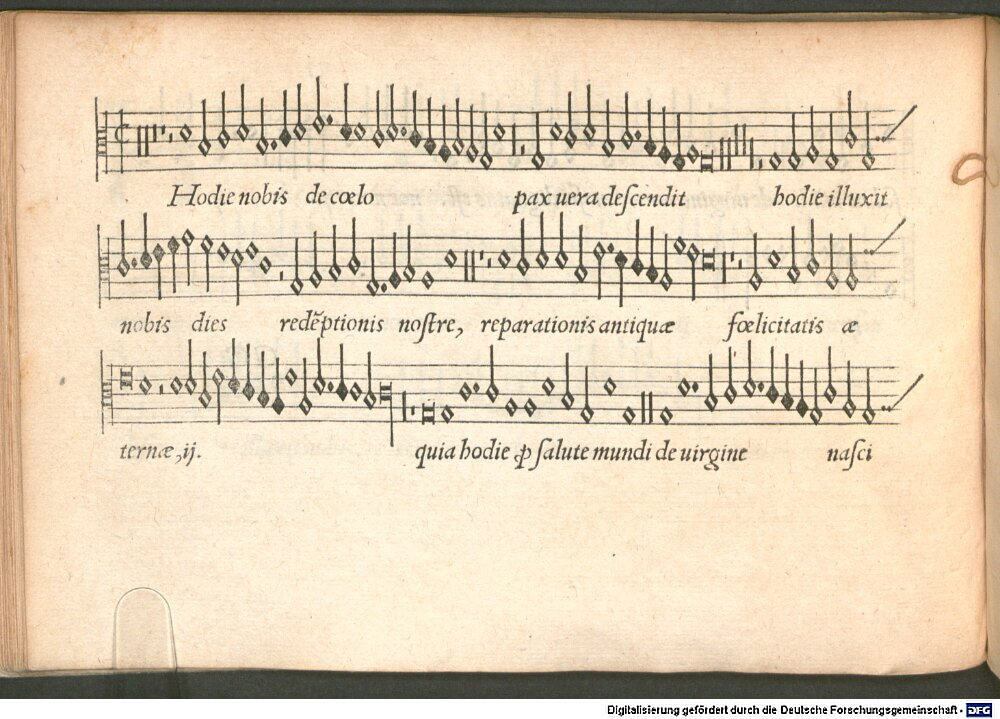 Hodie nobis de cœlo pax uera deſcendit hodie illuxit
nobis dies redẽptionis noſtre, reparationis antiquæ fœlicitatis æ
ternæ, ij. quia hodie ꝓ ſalute mundi de uirgine naſci
Digitalisierung gefördert durch die Deutsche Forschungsgemeinschaft - DFG